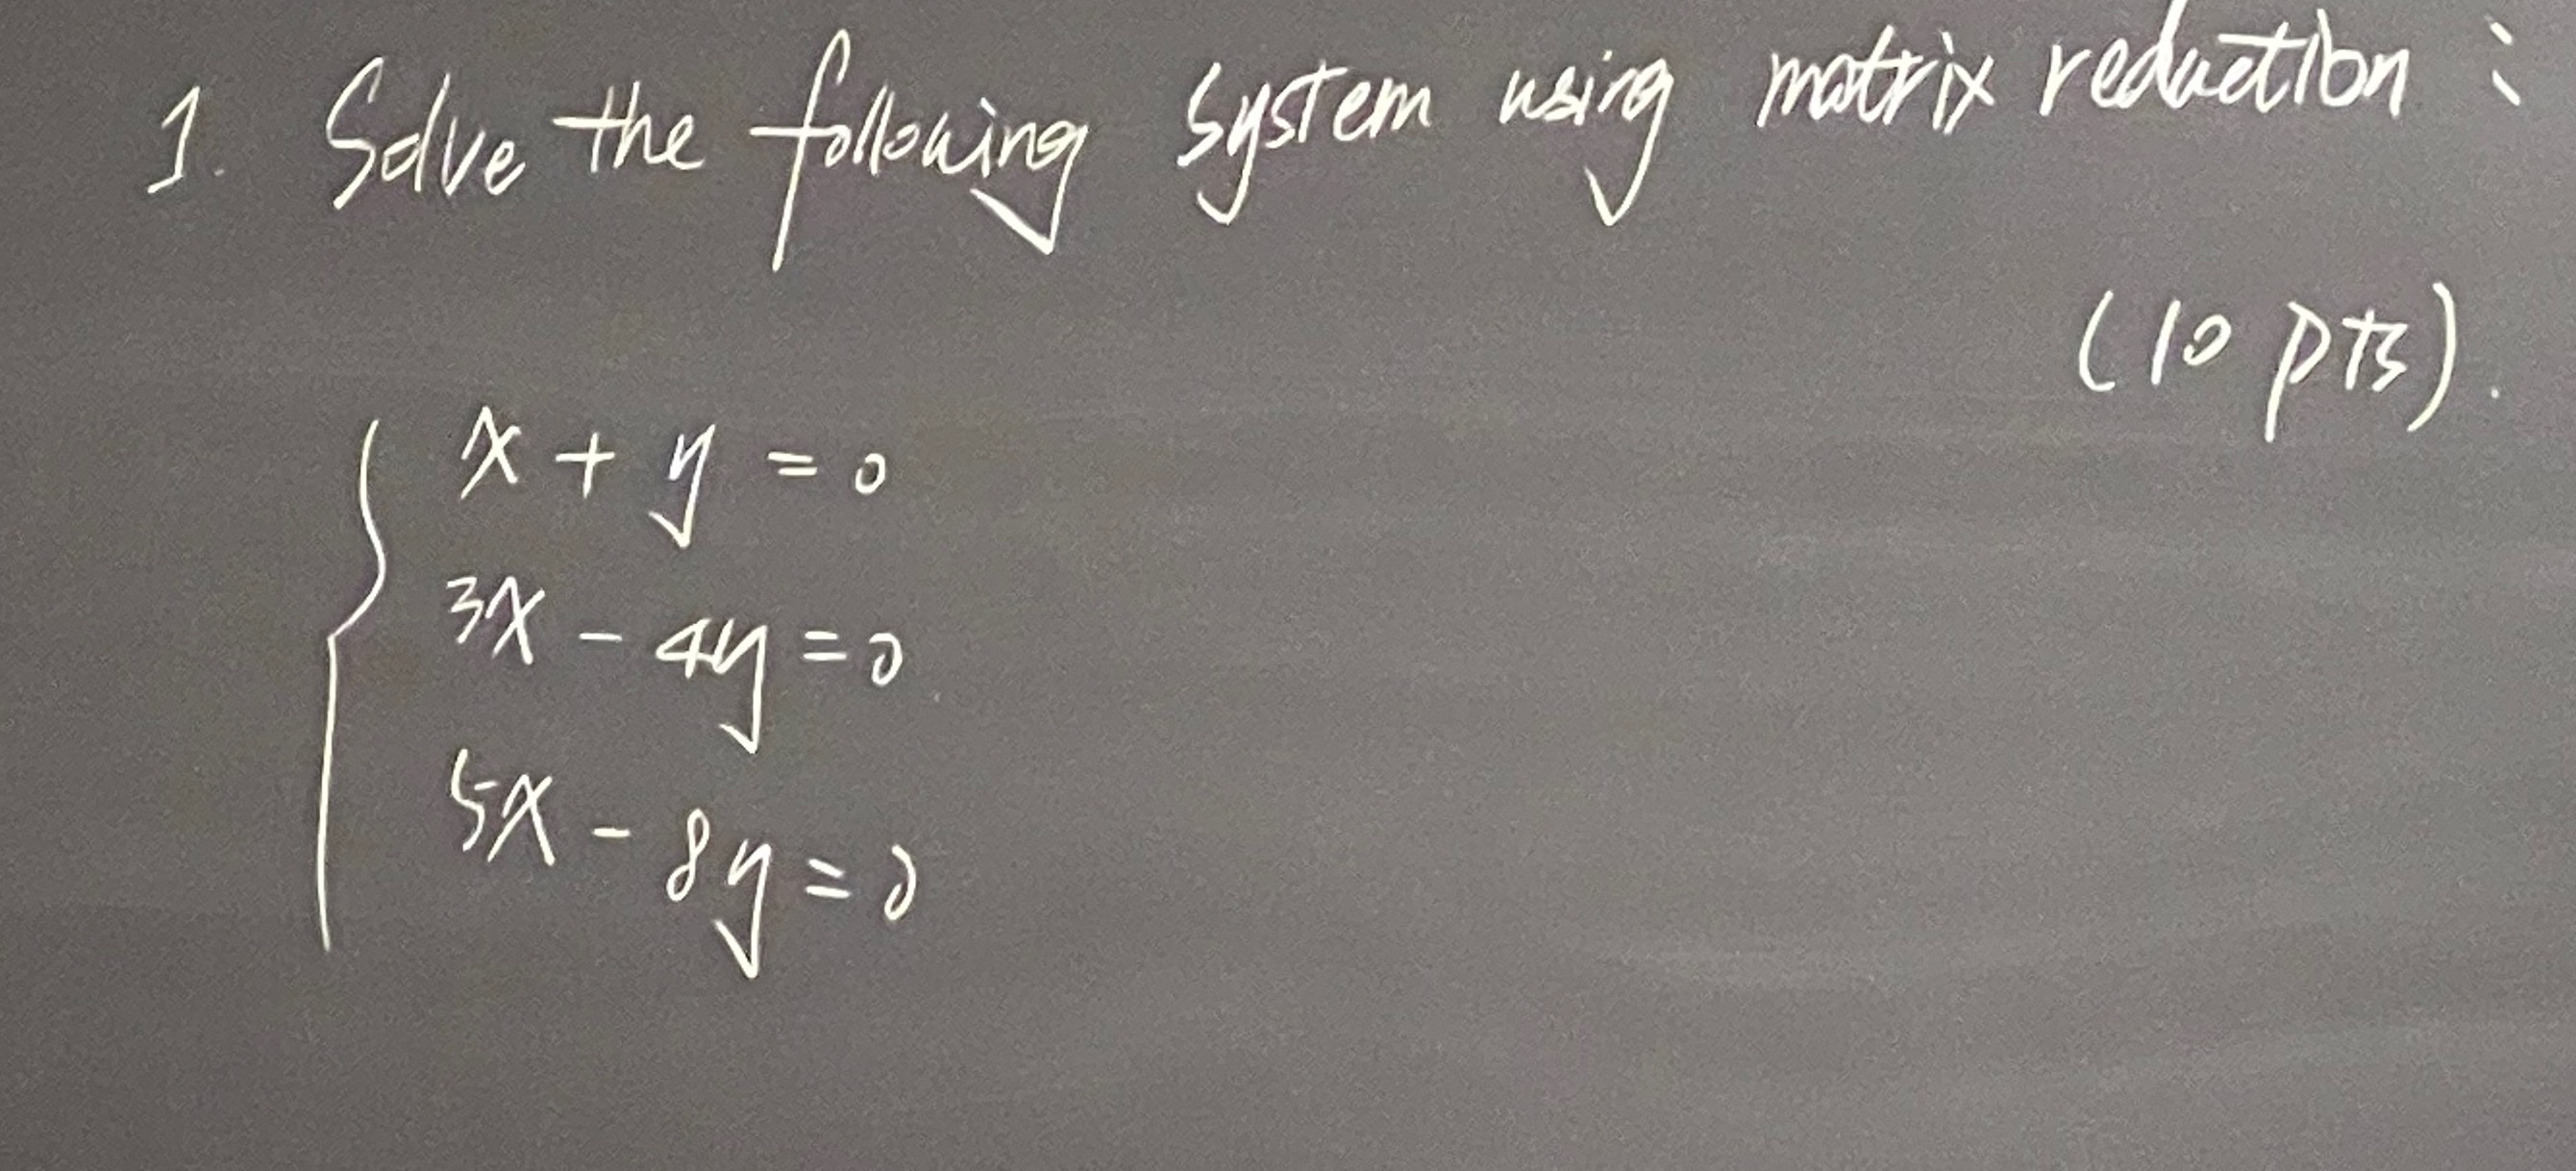 1. Solve the following system using matrix reduction :
(10 pts).
x + y = 0
3x - 4y = 0
5x - 8y = 0